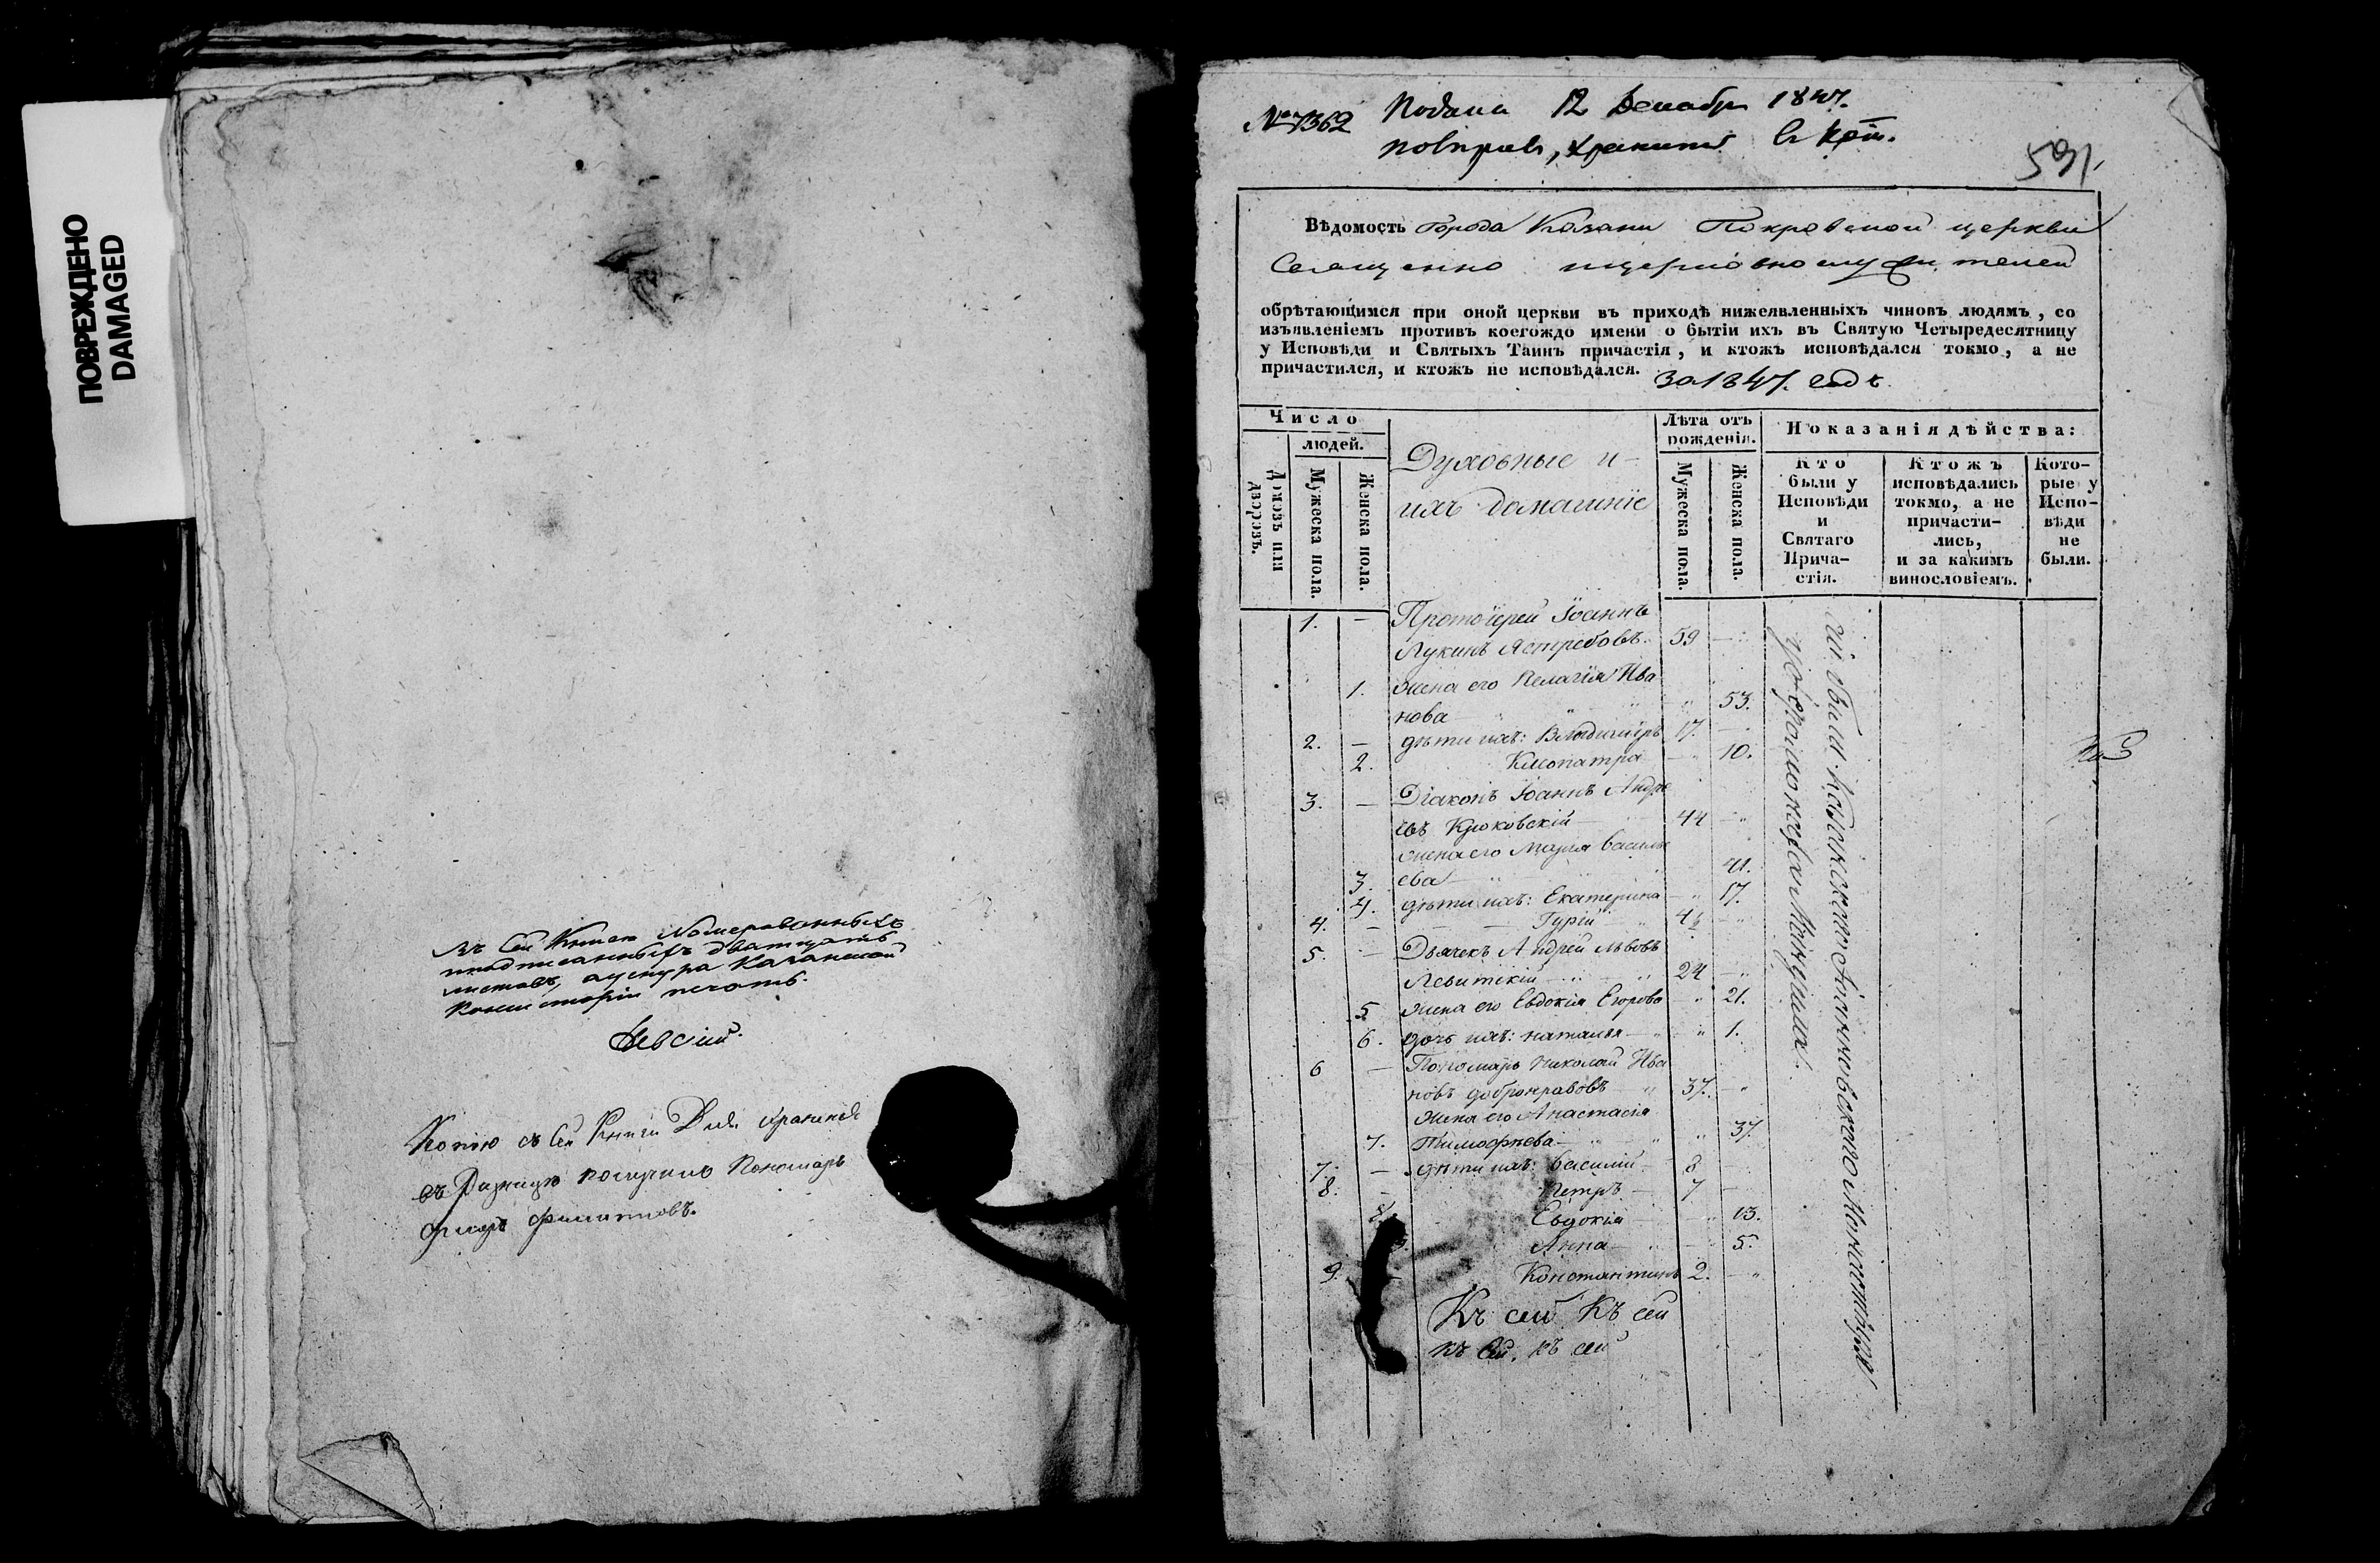 ПОВРЕЖДЕНО
DAMAGED
Въ сей книгѣ номерованныхъ
и подписанныхъ дватцать
листовъ, а у шнура Казанской
Консисторіи печать.
Копію съ сей Книги для храненія
въ Ризницу получилъ Пономарь
Филиповъ.
№ 7362 Подана 12 Декабря 1847.
повѣривъ, хранить
591.
Вѣдомость Города Казани Покровской церкви
Священно церковнослужителей
обрѣтающимся при оной церкви въ приходѣ нижеявленныхъ чиновъ людямъ, со
изъявленіемъ противъ коегождо имени о бытіи ихъ въ Святую Четыредесятницу
у Исповѣди и Святыхъ Таинъ причастія, и ктожъ исповѣдался токмо, а не
причастился, и ктожъ не исповѣдался. За 1847. годъ.
Число
людей.
Домовъ или
дворовъ.
Мужеска пола.
Женска пола.
Духовные и
ихъ домашніе
Лѣта отъ
рожденія.
Мужеска пола.
Женска пола.
Показанія дѣйства:
Кто
были у
Исповѣди
и
Святаго
Прича-
стія.
Ктожъ
исповѣдались
токмо, а не
причасти-
лись,
и за какимъ
винословіемъ.
Кото-
рые у
Испо-
вѣди
не
были.
1. — Протоіерей Іоаннъ
Лукинъ Ястребовъ 59 —
1. жена его Пелагія Ива
нова 53.
2. — дѣти ихъ: Владиміръ 17. —
2. Клеопатра — 10.
3. — Діаконъ Іоаннъ Андре
евъ Крюковскій — 44 —
жена его Марія Василье
3. ева 41.
4. дѣти ихъ: Екатерина — 17.
4. — Гурій
5. — Дьячекъ Андрей Львовъ
Левитскій 24 —
5 жена его Евдокія Егорова 21.
6. дочь ихъ: наталья — 1.
6 — Пономарь Николай Ива
новъ добронравовъ 37. —
жена его Анастасія
7. Тимофѣева — 37.
7. — дѣти ихъ: Василій 8 —
8. — Петръ — 7 —
8. Евдокія — 13.
Анна — 5.
9. — Константинъ 2. —
Къ сей Къ сей
къ сей. къ сей